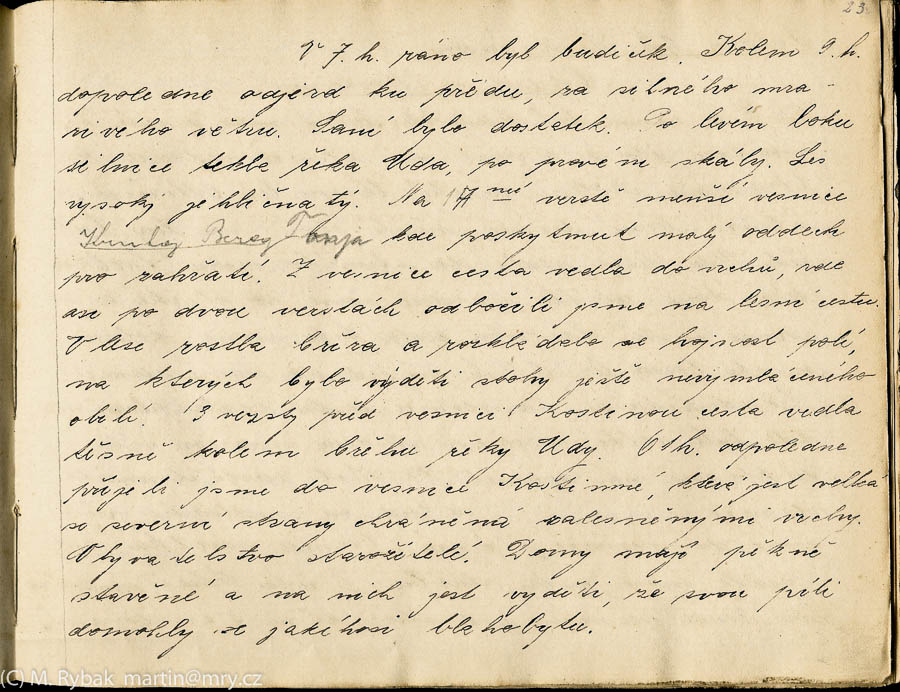 23.
V 7. h. ráno byl budíček. Kolem 9. h.
dopoledne odjezd ku předu, za silného mra-
zivého větru. Saní bylo dostatek. Po levém boku
silnice tekla řeka Uda, po pravém skály. Les
vysoký jehličnatý. Na 17 neú verstě menší vesnice
Berey kde poskytnut malý oddech
pro zahřátí. Z vesnice cesta vedla do vrchů, vde
asi po dvou verstách odbočili jsme na lesní cestu.
V lese rostla bříza a rozkládalo se hojnost polí,
na kterých bylo výděti stohy ještě nevymláceného
obilí. 3 versty před vesnicí Kostinou cesta vedla
těsně kolem břehu řeky Udy. O 1 h. odpoledne
přijeli jsme do vesnice Kostinné, která jest velká
se severní strany chráněná zalesněnými vrchy.
Obyvatelstvo starožitelé. Domy mají pěkně
stavěné a na nich jest vyděti, že svou pílí
domohly se jakéhosi blahobytu.
(C) M. Rybak martin@mry.cz